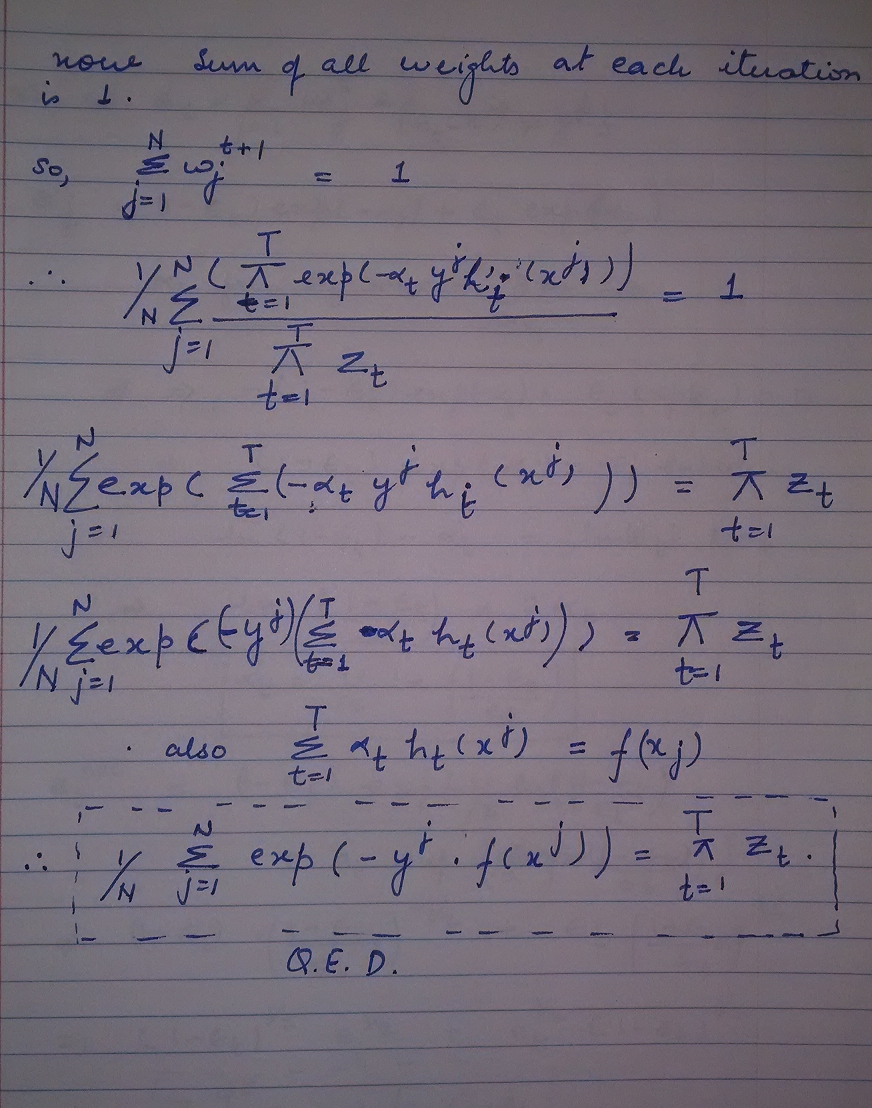 now sum of all weights at each iteration
is 1.
so, \sum_{j=1}^{N} w_j^{t+1} = 1
∴ 1/N \sum_{j=1}^{N} \frac{( \prod_{t=1}^{T} exp(-α_t y^j h_t (x^j) ) )}{\prod_{t=1}^{T} z_t} = 1
1/N \sum_{j=1}^{N} exp( \sum_{t=1}^{T} (-α_t y^j h_t (x^j) )) = \prod_{t=1}^{T} z_t
1/N \sum_{j=1}^{N} exp( (-y^j) ( \sum_{t=1}^{T} α_t h_t (x^j) ) ) = \prod_{t=1}^{T} z_t
. also \sum_{t=1}^{T} α_t h_t (x^j) = f(x_j)
∴ 1/N \sum_{j=1}^{N} exp(- y^j . f(x^j)) = \prod_{t=1}^{T} z_t .
Q.E.D.